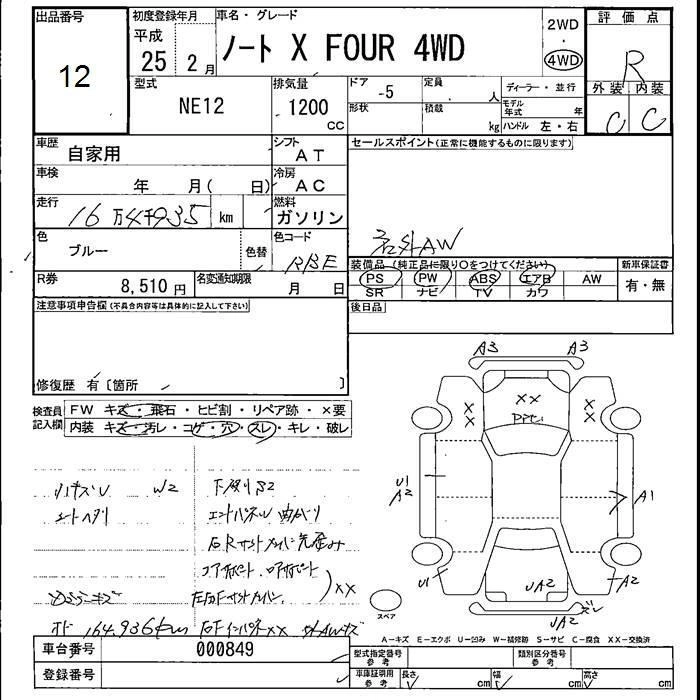 出品番号
12
初度登録年月
平成
25 2月
車名・グレード
ノート X FOUR 4WD
2WD
・
4WD
評価点
R
外装 内装
C C
型式
NE12
排気量
1200
cc
ドア
-5
定員
人
ディーラー・並行
形状
積載
kg
モデル年式
年
ハンドル 左・右
車歴
自家用
シフト
AT
セールスポイント(正常に機能するものに限ります)
車検
年 月( 日)
冷房
AC
走行
16万4千935 km
燃料
ガソリン
色
ブルー
色替
色コード
RBE
社外AW
装備品(純正品に限り○をつけてください)
新車保証書
PS PW ABS エアB AW
有・無
SR ナビ TV カワ
R券
8,510円
名変通知期限
月 日
後日品
注意事項申告欄(不具合内容等は具体的に記入して下さい)
修復歴 有〔箇所 〕
検査員記入欄
FW キズ・飛石・ヒビ割・リペア跡・×要
内装 キズ・汚レ・コゲ・穴・スレ・キレ・破レ
A3 A3
XX
XX
XX
U1
A2
A1
U1
UA2
A2
UA2
スレ
スペア
W2
下廻りS2
エンドパネル曲がり
コアサポート
XX
オド 164,936km
A-キズ E-エクボ U-凹み W-補修跡 S-サビ C-腐食 XX-交換済
車台番号
000849
型式指定番号
参考
類別区分番号
参考
登録番号
車庫証明用
参考
長さ
cm
幅
cm
高さ
cm